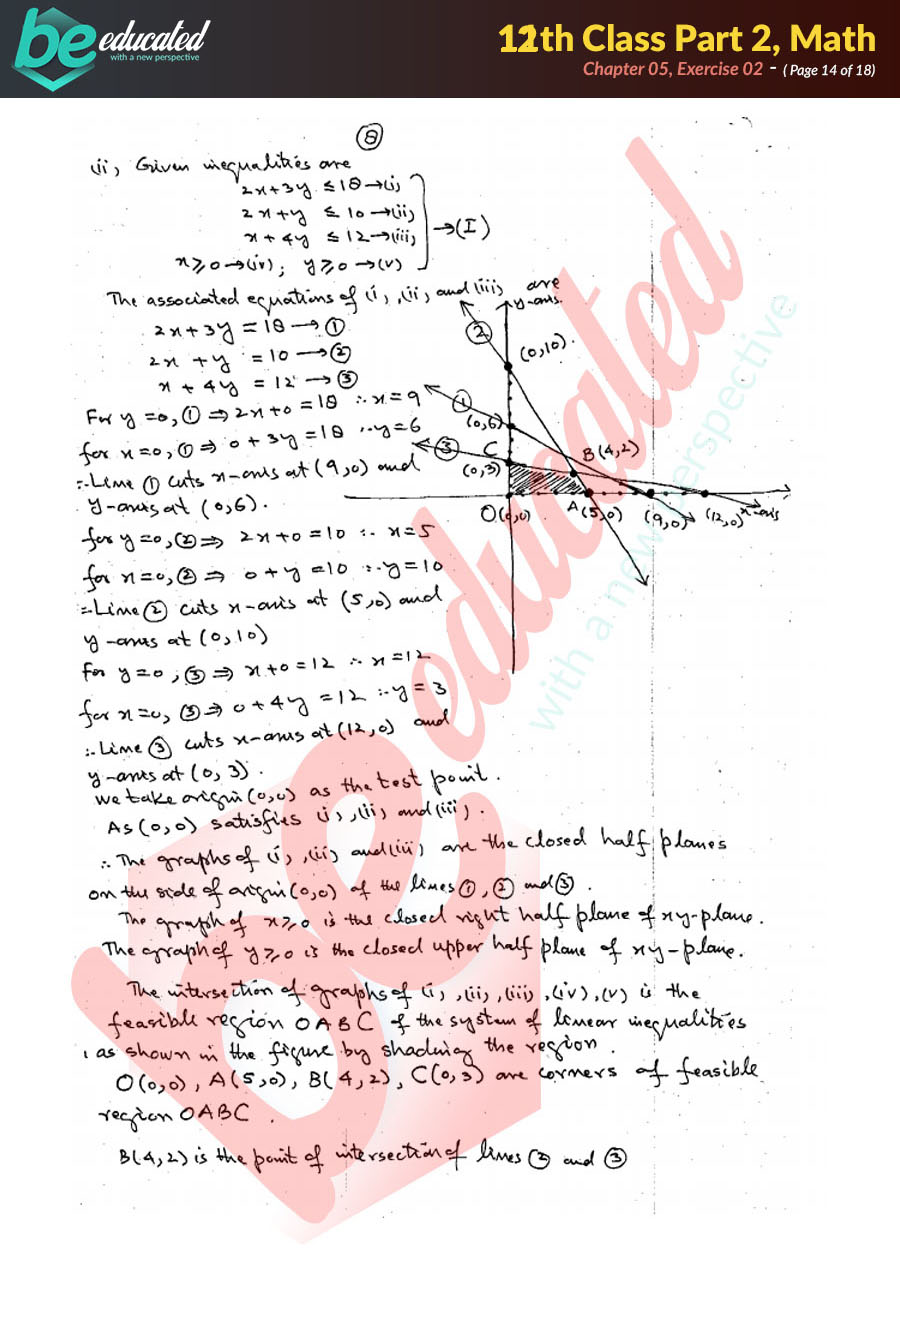 be educated
with a new perspective
12th Class Part 2, Math
Chapter 05, Exercise 02 - ( Page 14 of 18)
8
(ii) Given inequalities are
2x+3y ≤ 18 → (i)
2x+y ≤ 10 → (ii)
x+4y ≤ 12 → (iii)
→ (I)
x ≥ 0 → (iv) ; y ≥ 0 → (v)
The associated equations of (i), (ii) and (iii) are
2x+3y = 18 → ①
2x + y = 10 → ②
x + 4y = 12 → ③
For y=0, ① ⇒ 2x+0=18 ∴ x=9
for x=0, ① ⇒ 0+3y=18 ∴ y=6
∴ Line ① cuts x-axis at (9,0) and
y-axis at (0,6).
for y=0, ② ⇒ 2x+0=10 ∴ x=5
for x=0, ② ⇒ 0+y=10 ∴ y=10
∴ Line ② cuts x-axis at (5,0) and
y-axis at (0,10)
for y=0, ③ ⇒ x+0=12 ∴ x=12
for x=0, ③ ⇒ 0+4y=12 ∴ y=3
∴ Line ③ cuts x-axis at (12,0) and
y-axis at (0,3).
y-axis
②
(0,10).
①
(0,6)
③
C
B(4,2)
(0,3)
O(0,0)
A(5,0)
(9,0)
(12,0)
x-axis
we take origin (0,0) as the test point.
As (0,0) satisfies (i), (ii) and (iii).
∴ The graphs of (i), (ii) and (iii) are the closed half planes
on the side of origin (0,0) of the lines ①, ② and ③.
The graph of x≥0 is the closed right half plane of xy-plane.
The graph of y≥0 is the closed upper half plane of xy-plane.
The intersection of graphs of (i), (ii), (iii), (iv), (v) is the
feasible region OABC of the system of linear inequalities
, as shown in the figure by shading the region.
O(0,0), A(5,0), B(4,2), C(0,3) are corners of feasible
region OABC.
B(4,2) is the point of intersection of lines ② and ③
be educated
with a new perspective